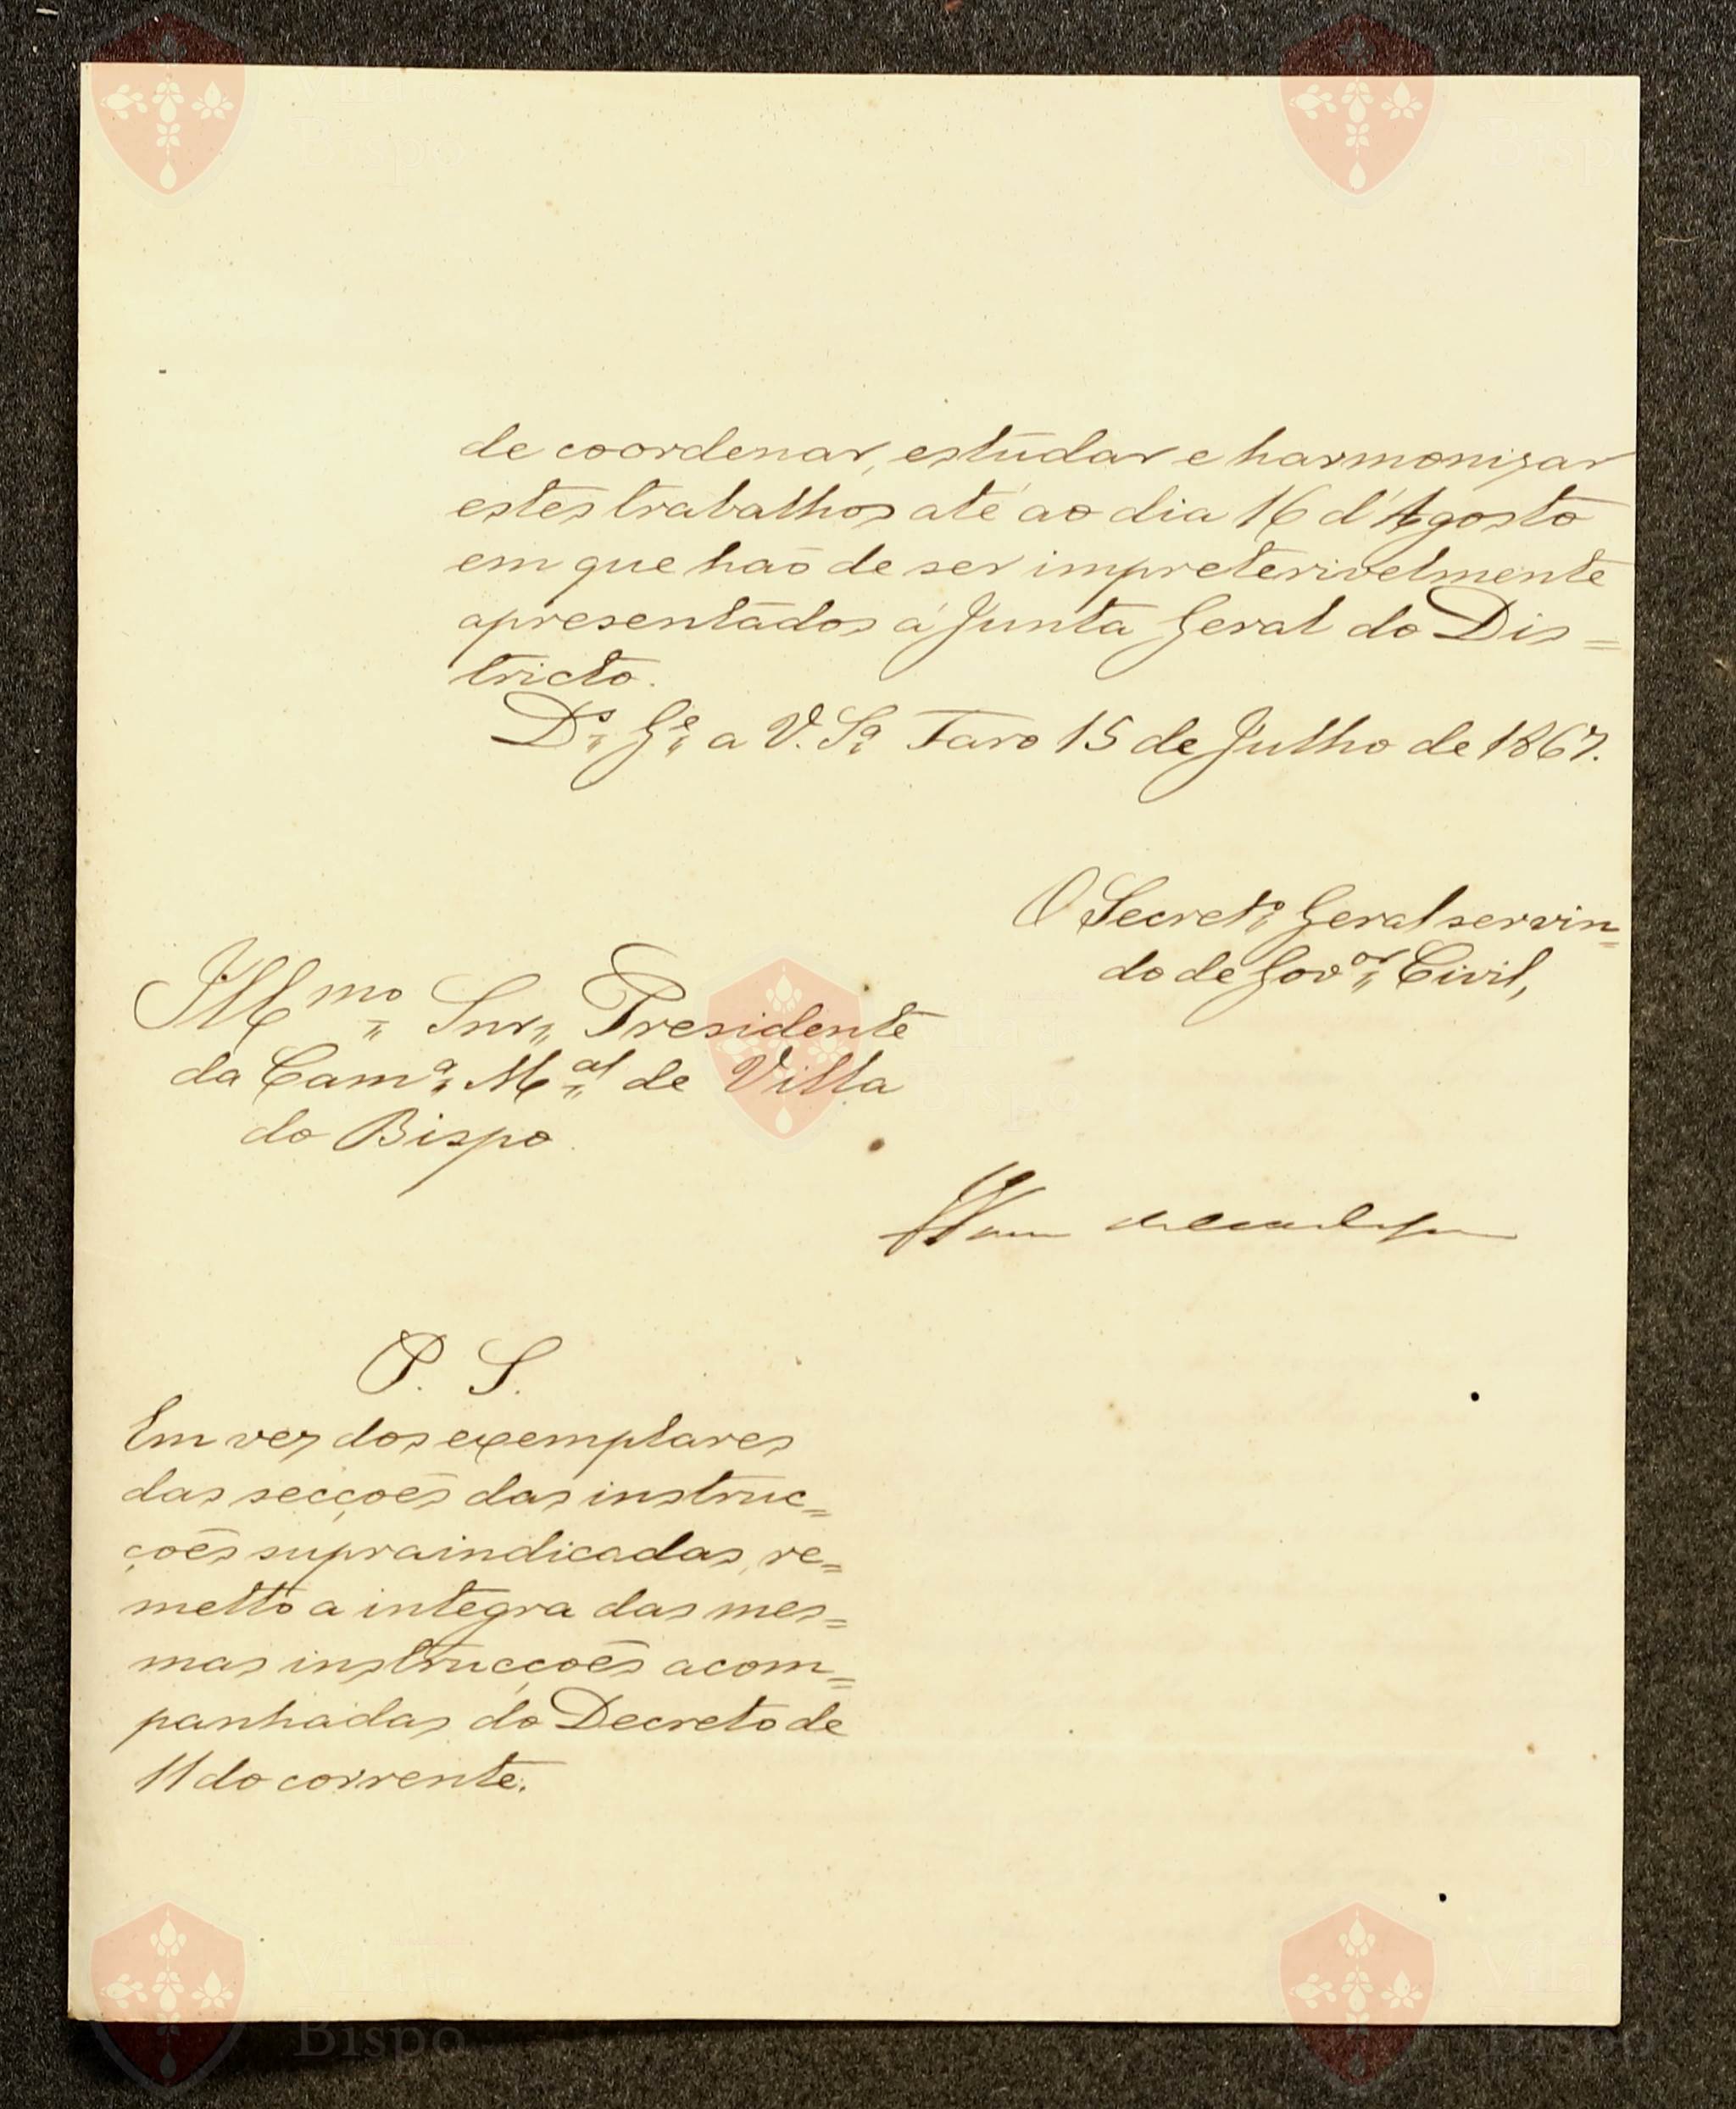 de coordenar, estudar e harmonizar
estes trabalhos até ao dia 16 d'Agosto
em que hão de ser impreterivelmente
apresentados á Junta Geral do Dis=
tricto.
D.s G.e a V. S.a Faro 15 de Julho de 1867.
O Secret.o Geral servin=
do de Gov.or Civil,
Ill.mo Snr. Presidente
da Cam.a M.al de Villa
do Bispo.
P. S.
Em vez dos exemplares
das secções das instruc=
ções supraindicadas, re=
metto a integra das mes=
mas instrucções acom=
panhadas do Decreto de
11 do corrente.
Bispo